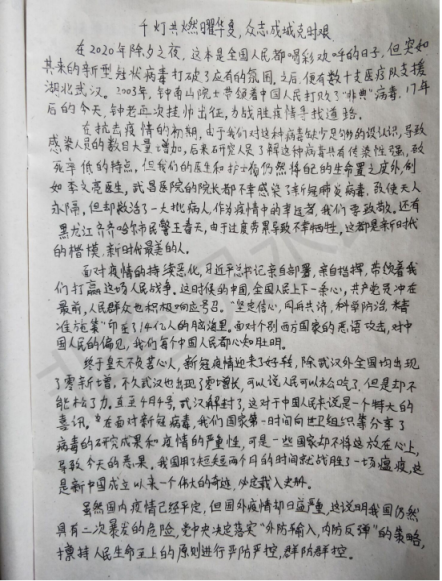 千灯共燃曜华夏,众志成城克时艰
在2020年除夕之夜,这本是全国人民都喝彩欢呼的日子,但突如
其来的新型冠状病毒打破了应有的氛围。之后,便有数十支医疗队支援
湖北武汉。2003年,钟南山院士带领着中国人民打败了“非典”病毒,17年
后的今天,钟老再次挂帅出征,为战胜疫情寻找道路。
在抗击疫情的初期,由于我们对这种病毒缺少足够的认识,导致
感染人员的数目大量增加,后来研究人员了解这种病毒具有传染性强,致
死率低的特点。但我们的医生和护士仍然将自己的生命置之度外,例
如李文亮医生,武昌医院的院长都不幸感染了新冠肺炎病毒,致使天人
永隔,但却救活了一大批病人,作为疫情中的幸运者,我们要致敬。还有
黑龙江齐齐哈尔市民警王春天,由于过度劳累导致不幸牺牲,这都是新时代
的楷模,新时代最美的人。
面对疫情的持续恶化,习近平总书记亲自部署,亲自指挥,带领着我
们打赢这场人民战争。这时候的中国,全国人民上下一条心,共产党员冲在
最前,人民群众也积极响应号召。“坚定信心,同舟共济,科学防治,精
准施策”印在了14亿人的脑海里。面对个别西方国家的恶语攻击,对中
国人民的偏见,我们每个中国人民都心知肚明。
终于皇天不负苦心人,新冠疫情迎来了好转,除武汉外全国均出现
了零新增。不久武汉也出现了零增长,可以说人民可以松口吃了,但是却不
能松了力。直至4月4号,武汉解封了,这对于中国人民来说是一个特大的
喜讯。在面对新冠病毒,我们国家第一时间向世卫组织等分享了
病毒的研究成果和疫情的严重性,可是一些国家却不将这放在心上,
导致今天的恶果。我国用了短短两个月的时间就战胜了一场瘟疫,这
是新中国成立以来一个伟大的奇迹,必定载入史册。
虽然国内疫情已经平定,但国外疫情却日益严重,这说明我国仍然
具有二次暴发的危险,党中央决定落实“外防输入,内防反弹”的策略,
秉持人民生命至上的原则进行严防严控,群防群控。